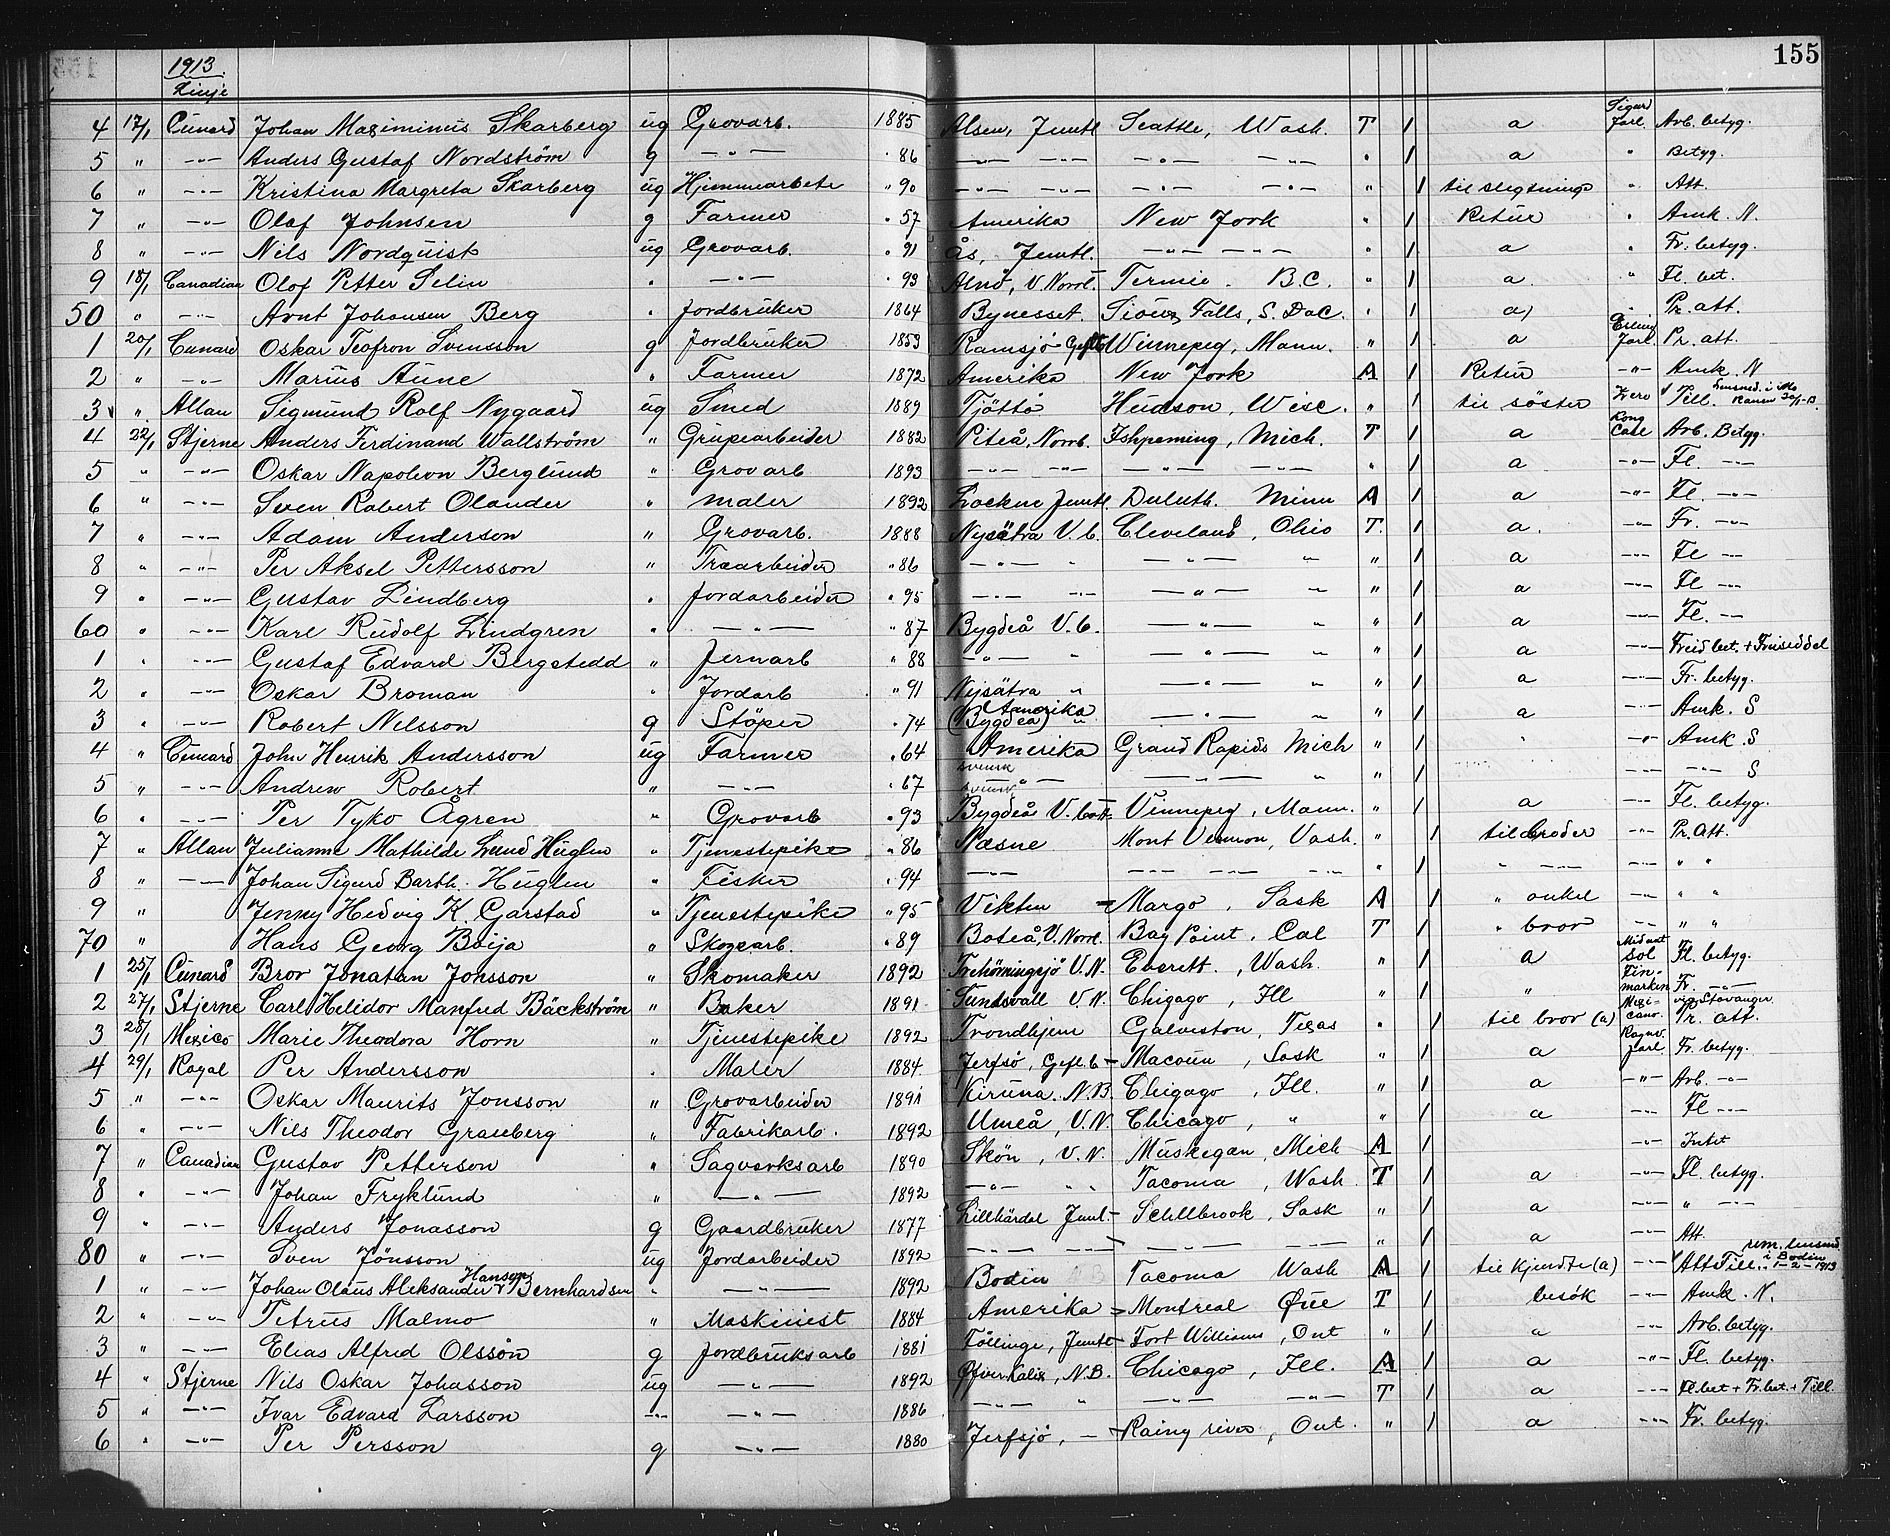 155
1913
Linje
4 17/1 Cunard Johan Maximinus Skarberg ug Grovarb. 1885 Alsen, Jemtl Seattle, Wash. T 1 a Sigurd Jarl. Arb. betyg.
5 " -"- Anders Gustaf Nordström g -"- " 86 -"- -"- -"- -"- " 1 a " Betyg.
6 " -"- Kristina Margreta Skarberg ug Hjemmearbete " 90 -"- -"- -"- -"- " 1 til slegtninge " Att.
7 " -"- Olof Johnsen g Farmer " 57 Amerika New York " 1 Retur " Amk. N.
8 " -"- Nils Nordquist ug Grovarb. " 91 Ås, Jemtl. -"- -"- " 1 a " Fr. betyg.
9 18/1 Canadian Olof Petter Selin " -"- " 93 Alnö, V. Norrl. Fernie. B.C. " 1 a. " Fl. bet.
50 " -"- Arnt Johansen Berg " Jordbruker 1864 Bynesset. Sioux Falls, S. Dac. " 1 a) " Pr. att.
1 20/1 Cunard Oskar Teofron Svensson g Jordbruker 1859 Ramsjö Gefleb Winnepeg, Mann. " 1 a Erling Jarl. Pr. att.
2 " -"- Marius Aune " Farmer 1872 Amerika New York A 1 Retur -"- Amk. N
3 " Allan Sigmund Rolf Nygaard ug Smed 1889 Tjöttö Hudson, Wisc. " 1 til söster Zero Till.
4 22/1 Stjerne Anders Ferdinand Wallström " Grupearbeider 1882 Piteå, Norrb. Ishpeming, Mich. T 1 a Kong Carl Arb. Betyg.
5 " -"- Oskar Napoleon Berglund " Grovarb 1893 -"- -"- -"- -"- " 1 a -"- Fl. -"-
6 " -"- Sven Robert Olander " maler 1892 Lockne Jemtl. Duluth. Minn A 1 a -"- Fl. -"-
7 " -"- Adam Anderson " Grovarb. 1888 Nysätra V. b. Cleveland, Ohio T. 1 a. -"- Fr. -"-
8 " -"- Per Aksel Pettersson " Træarbeider " 86 -"- " -"- " " 1 a -"- Fl -"-
9 " -"- Gustav Lindberg " Jordarbeider " 95 -"- -"- -"- " " 1 a -"- Fl -"-
60 " -"- Karl Rudolf Lindgren " -"- " 87 Bygdeå V. b. -"- " " 1 a -"- Fl. -"-
1 " -"- Gustaf Edvard Bergstedd " Jernarb " 88 -"- " -"- " " 1 a -"- Freid bet. + Friseddel
2 " -"- Oskar Broman " Jordarb " 91 Nysätra " -"- " " 1 a -"- Fr. betyg.
3 " -"- Robert Nilsson g Stöper " 74 (Bygdeå) Amerika " -"- " " 1 a -"- Amk. S
4 " Cunard John Henrik Andersson ug Farmer " 64 Amerika svensk Grand Rapids Mich " 1 " -"- Amk. S
5 " -"- Andrew Robert " -"- " 67 svensk -"- -"- " " 1 -"- -"- S
6 " -"- Per Tyko Ågren " Grovarb " 93 Bygdeå V. bott. Vinnepeg, Mann. " 1 a -"- Fl. betyg.
7 " Allan Julianne Mathilde Lund Huglen " Tjenestepike " 86 Næsne Mont Vernon, Vash. " 1 til broder -"- Pr. Att.
8 " -"- Johan Sigurd Barth. Huglen " Fisker " 94 -"- -"- -"- -"- " 1 " -"- -"- " "
9 " Jenny Hedvig K. Garstad " Tjenestepike " 95 Vikten Margo, Sask A 1 " onkel -"- " "
70 " Hans Georg Boija " Skogearb. " 89 Boteå, V. Norrl. Bay Point, Cal T 1 " bror -"- " "
1 25/1 Cunard Bror Jonatan Jonsson " Skomaker 1892 Everett., Wash. " 1 a Midnatsol Fl. betyg.
2 27/1 Stjerne Carl Helidor Manfred Bäckström " Baker 1891 Sundsvall V. N. Chigago, Ill " 1 " Finmarken Fr. -"-
3 28/1 Mexico Marie Theodora Horn " Tjenestepike 1892 Trondhjem Galveston, Texas " 1 til bror (a) Mexicano. via Stavanger Pr. att.
4 29/1 Royal Per Andersson " Maler 1884. Jerfsö, Gefl. b Macoun, Sask " 1 a Ragnv. Jarl. Fr. betyg.
5 " -"- Oskar Maurits Jonsson " Grovarbeider 1891 Kiruna. N.B. Chigago, Ill. " 1 a -"- Arb. -"-
6 " -"- Nils Theodor Granberg " Fabrikarb. 1892 Umeå, V.N. Chicago, " " 1 a -"- Fl -"-
7 " Canadian Gustav Petterson " Sagverksarb 1890 Skön, V. N. Muskegan, Mich A 1 -"- Intet
8 " -"- Johan Fryklund " -"- 1892 -"- " " Tacoma, Wash. T 1 a -"- Fl. betyg.
9 " -"- Anders Jonasson g Gaardbruker 1877 Lillhärdal Jemtl Schllbrook, Sask " 1 a -"- " -"-
80 " -"- Sven Jönsson ug Jordarbeider 1892 -"- -"- -"- -"- " 1 a -"- Att.
1 " -"- Johan Olaus Aleksander Hansen Bernhardsen " -"- 1892 Bodin Tacoma Wash A 1 til kjendte (a) -"- Att Till. i Bodin 1-2-1913
2 " -"- Petrus Malmo " Maskinist 1884 Amerika Montreal Que T 1 besök -"- Amk. N.
3 " -"- Elias Alfred Olsson g Jordbruksarb 1881 Föllinge, Jemtl Fort Williams, Ont " 1 a -"- Arb. betyg.
4 " Stjerne Nils Oskar Johasson ug -"- 1892 Öfver Kalix, N.B. Chicago, Ill. A 1 a -"- Fl. betyg.
5 " -"- Ivar Edvard Larsson -"- -"- 1886 -"- " -"- -"- T 1 a -"- Fl. bet + Fr. bet. + Till.
6 " -"- Per Persson g -"- 1880 Jerfsjö, - Rainy river, Ont. " 1 a -"- Fr. betyg.